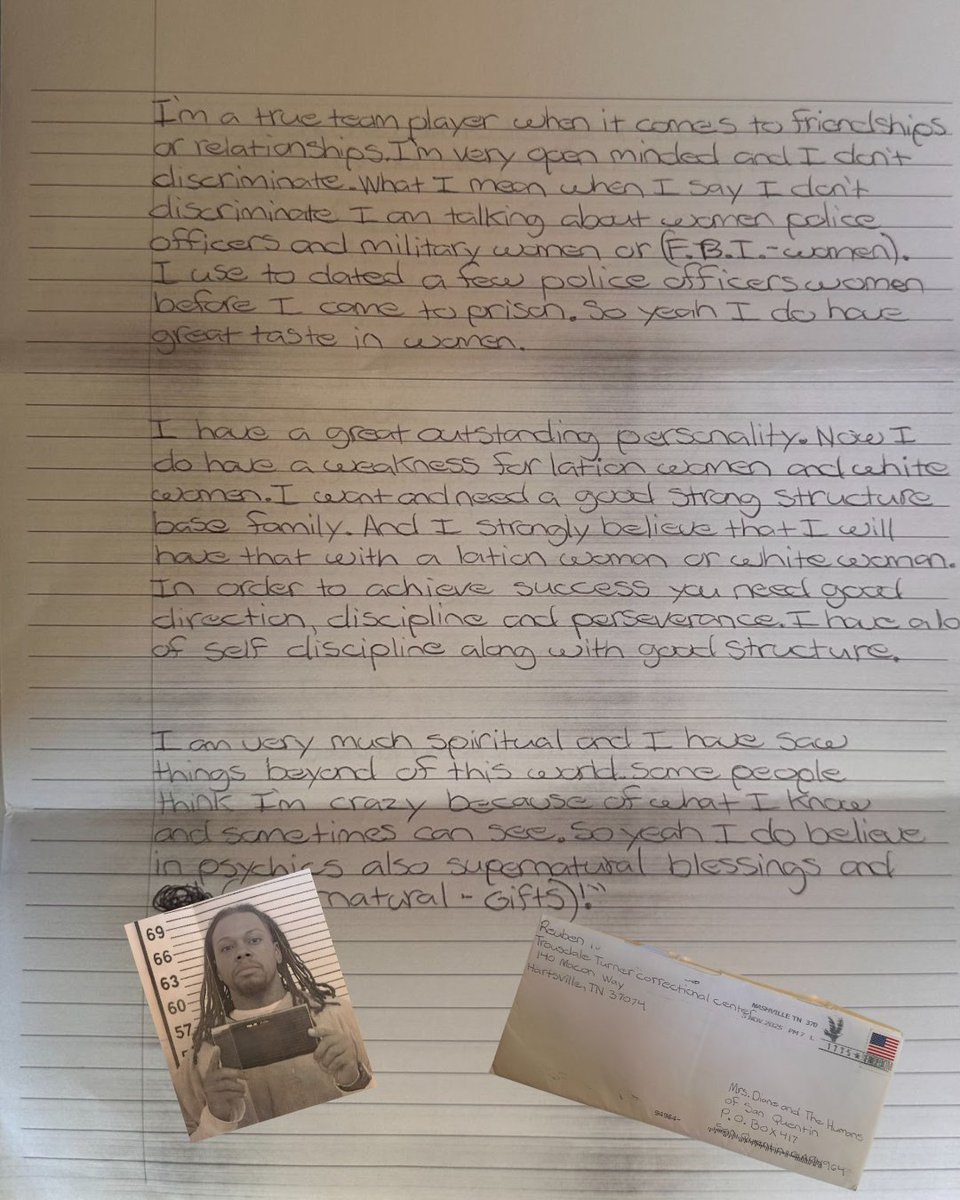 I'm a true team player when it comes to friendships
or relationships. I'm very open minded and I don't
discriminate. What I mean when I say I don't
discriminate I am talking about women police
officers and military women or (F.B.I.-women).
I use to dated a few police officers women
before I come to prison. So yeah I do have
great taste in women.
I have a great outstanding personality. Now I
do have a weakness for lation women and white
women. I want and need a good strong structure
base family. And I strongly believe that I will
have that with a lation woman or white woman.
In order to achieve success you need good
direction, discipline and perseverance. I have alo
of self discipline along with good structure.
I am very much spiritual and I have saw
things beyond of this world. Some people
think I'm crazy because of what I know
and sometimes can see. So yeah I do believe
in psychics also supernatural blessings and
natural - Gifts)!"
69
66
63
60
57
Reuben
Trousdale Turner correctional center
140 Macon Way
Hartsville, TN 37074
NASHVILLE TN 370
NOV 2025 PM 7 L
1775
Mrs. Diane and The Humans
of San Quentin
P.O. BOX 417
San Quentin, CA 94964
94964-